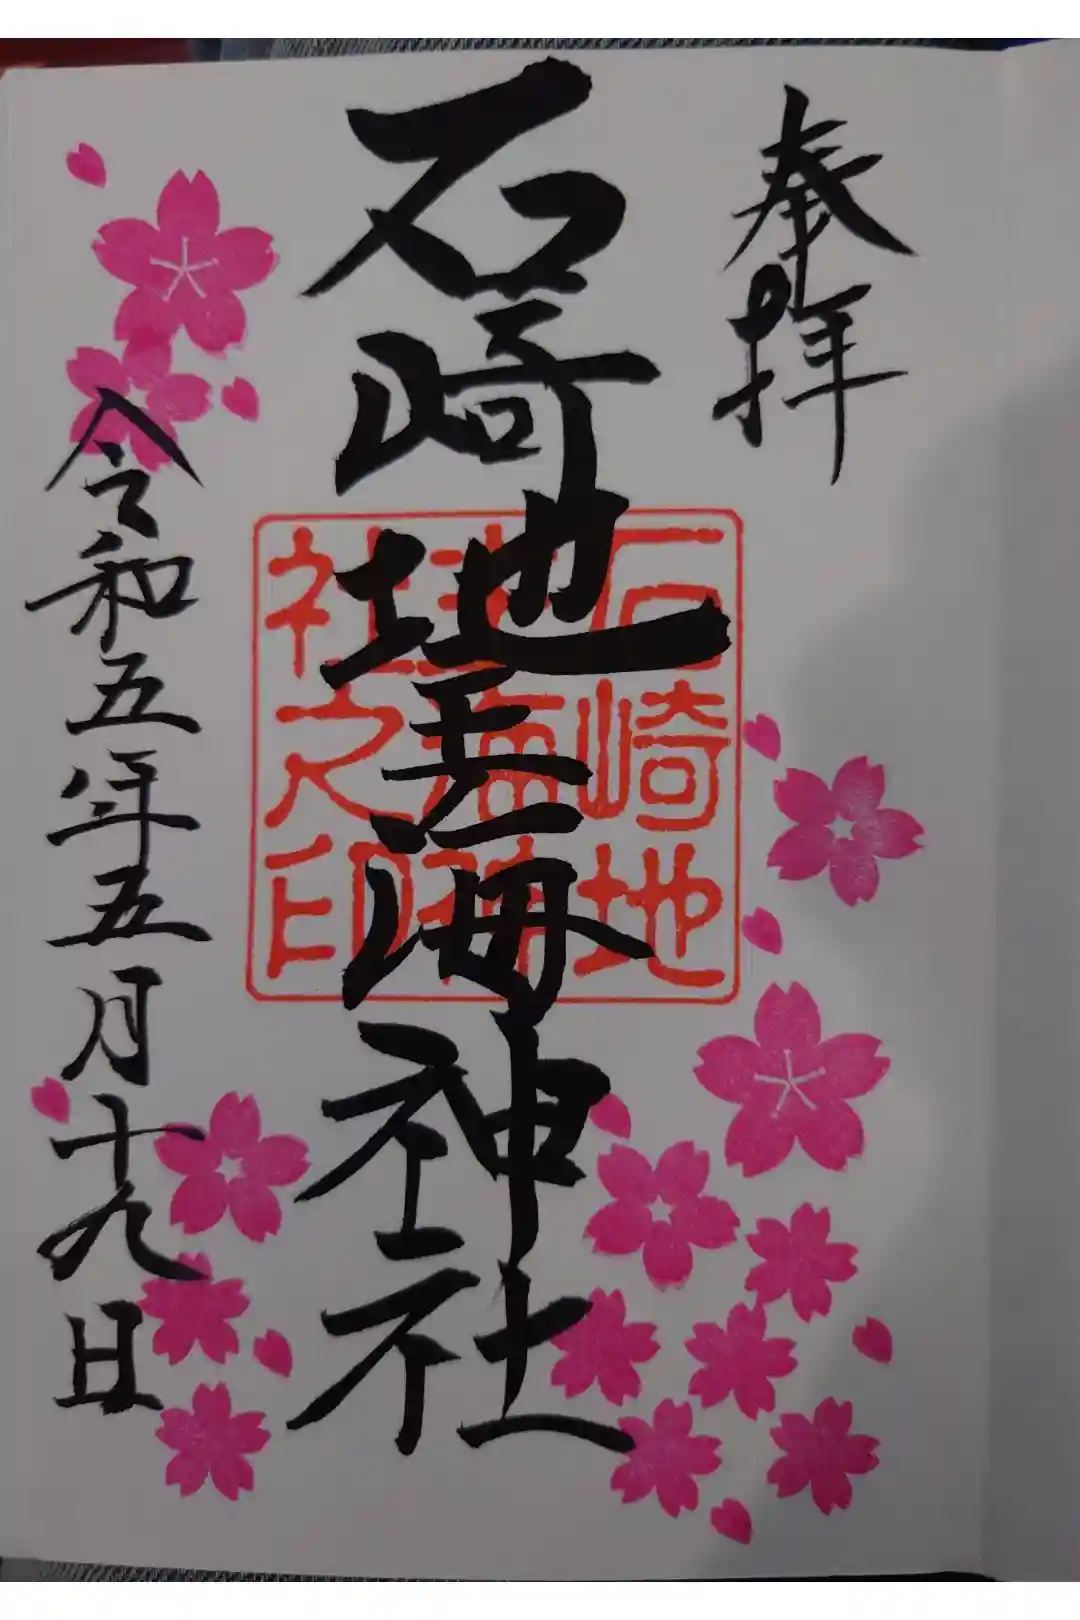 奉拝
石崎地主海神社
令和五年五月十九日
石崎地
主海神
社之印